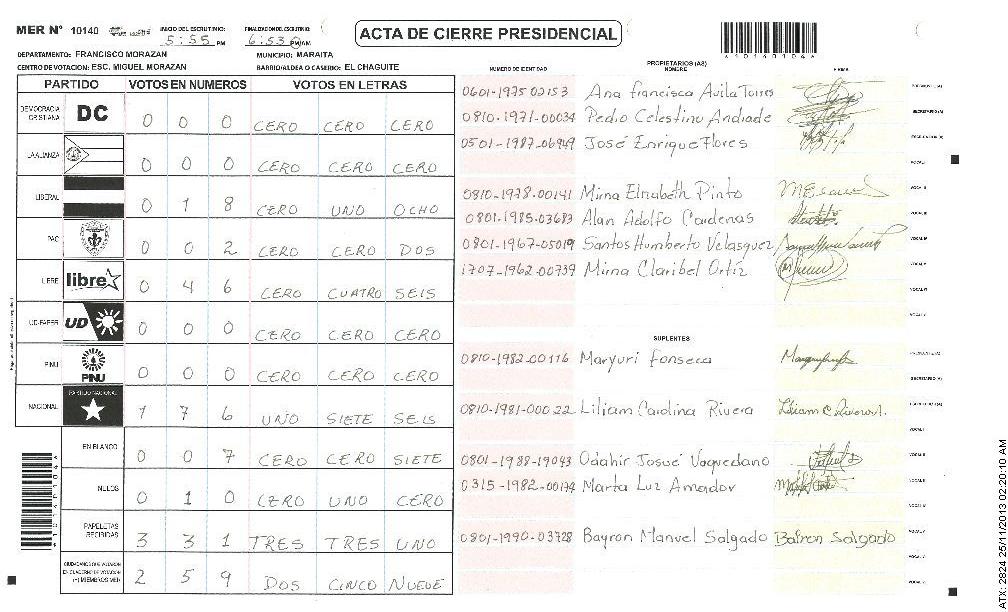 MER N° 10140 INICIO DEL ESCRUTINIO: 5:55 PM FINALIZACION DEL ESCRUTINIO: 6:53 PM/AM ACTA DE CIERRE PRESIDENCIAL
DEPARTAMENTO: FRANCISCO MORAZAN MUNICIPIO: MARAITA
CENTRO DE VOTACION: ESC. MIGUEL MORAZAN BARRIO/ALDEA O CASERIO: EL CHAGUITE
PARTIDO VOTOS EN NUMEROS VOTOS EN LETRAS
DEMOCRACIA CRISTIANA DC 0 0 0 CERO CERO CERO
LA ALIANZA 0 0 0 CERO CERO CERO
LIBERAL 0 1 8 CERO UNO OCHO
PAC 0 0 2 CERO CERO DOS
LIBRE libre 0 4 6 CERO CUATRO SEIS
UD-FAPER UD 0 0 0 CERO CERO CERO
PINU PINU 0 0 0 CERO CERO CERO
NACIONAL PARTIDO NACIONAL 1 7 6 UNO SIETE SEIS
EN BLANCO 0 0 7 CERO CERO SIETE
NULOS 0 1 0 CERO UNO CERO
PAPELETAS RECIBIDAS 3 3 1 TRES TRES UNO
CIUDADANOS QUE VOTARON EN CUADERNO DE VOTACION (+) MIEMBROS MER 2 5 9 DOS CINCO NUEVE
NUMERO DE IDENTIDAD PROPIETARIOS (AS) NOMBRE FIRMA
0601-1975 02153 Ana francisca Avila Torres
0810-1971-00034 Pedio Celestino Andiade
0501-1987-06949 José Enrique Flores
0810-1978-00141 Mirna Elizabeth Pinto
0801-1985-03683 Alan Adolfo Cardenas
0801-1967-05019 Santos Humberto Velasquez
1707-1962-00739 Mirna Claribel Ortiz
SUPLENTES
0810-1982-00116 Maryuri Fonseca
0810-1981-00022 Liliam Carolina Rivera
0801-1988-19043 Odahir Josué Vaquedano
0315-1982-00174 Marta Luz Amador
0801-1990-03728 Bayron Manuel Salgado Bairon Salgado
ATX: 2824 25/11/2013 02:20:10 AM